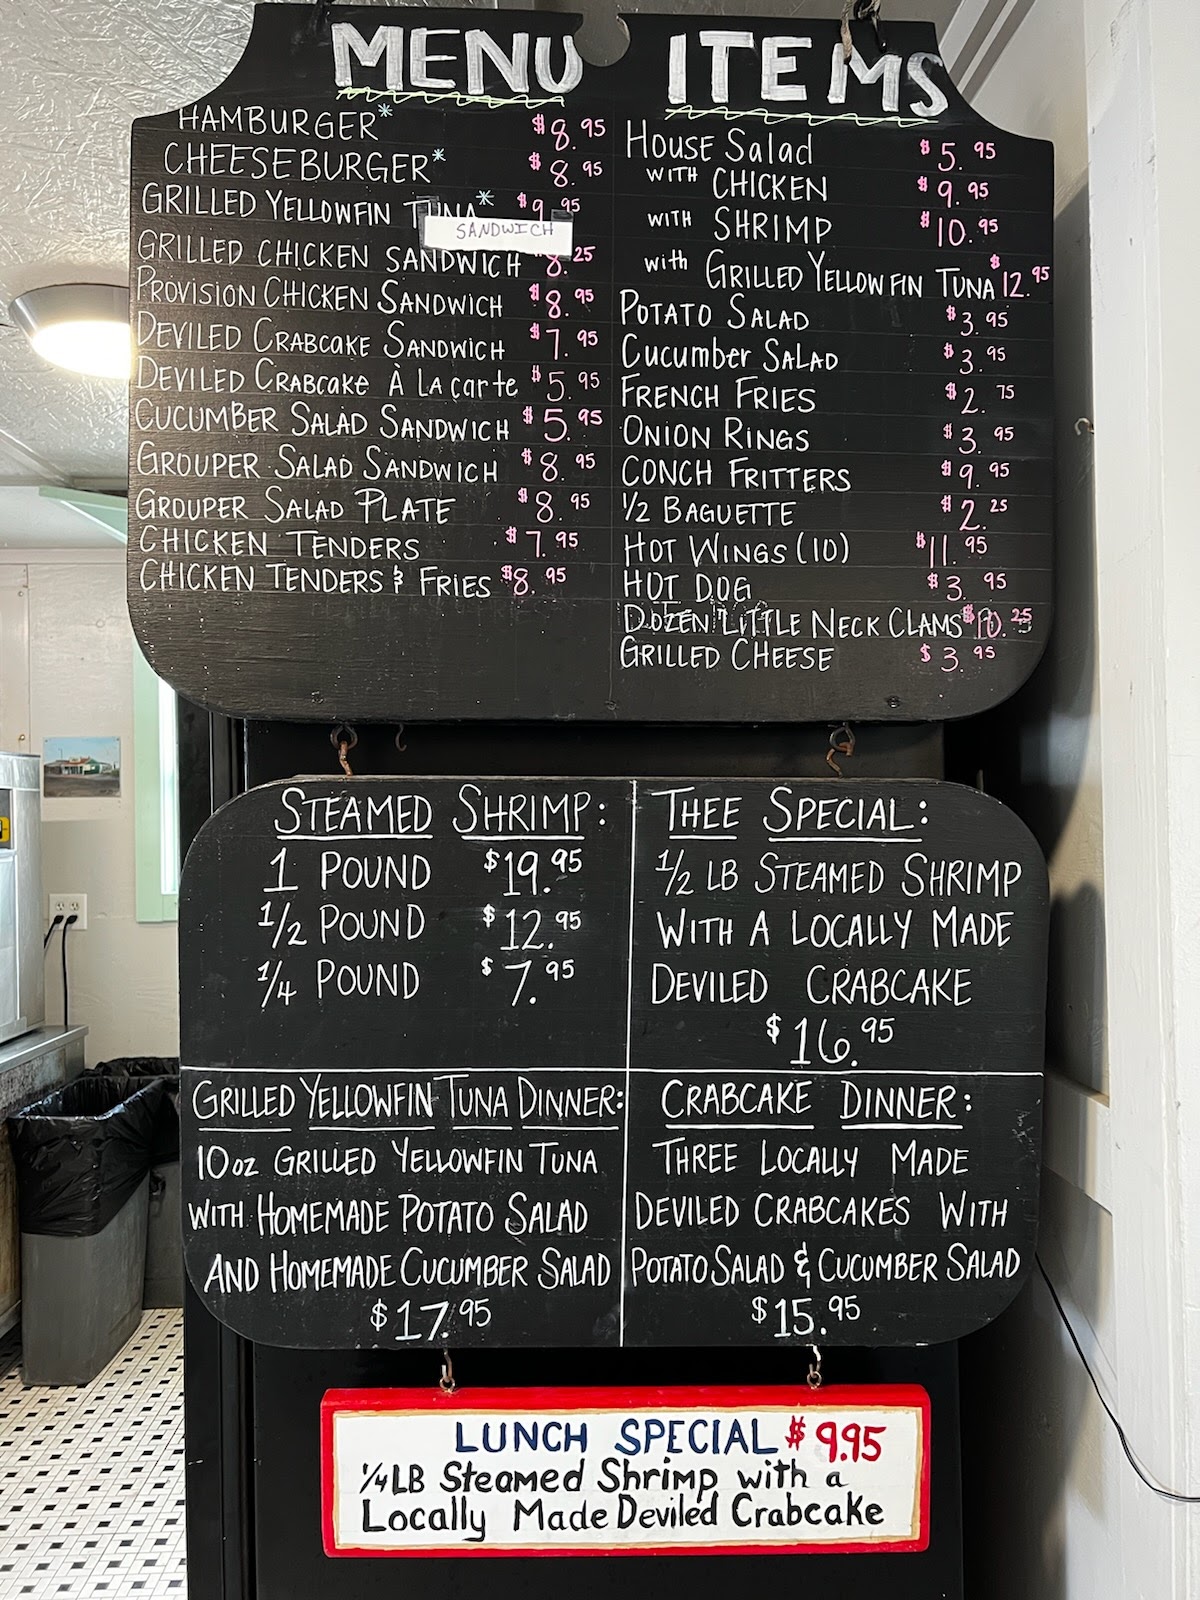 MENU ITEMS
HAMBURGER* $8.95
CHEESEBURGER* $8.95
GRILLED YELLOWFIN TUNA* $9.95
SANDWICH
GRILLED CHICKEN SANDWICH $8.25
PROVISION CHICKEN SANDWICH $8.95
DEVILED CRABCAKE SANDWICH $7.95
DEVILED CRABCAKE À LA CARTE $5.95
CUCUMBER SALAD SANDWICH $5.95
GROUPER SALAD SANDWICH $8.95
GROUPER SALAD PLATE $8.95
CHICKEN TENDERS $7.95
CHICKEN TENDERS & FRIES $8.95
HOUSE Salad $5.95
WITH CHICKEN $9.95
WITH SHRIMP $10.95
with GRILLED YELLOWFIN TUNA $12.95
POTATO SALAD $3.95
Cucumber SALAD $3.95
FRENCH FRIES $2.75
ONION RINGS $3.95
CONCH FRITTERS $9.95
1/2 BAGUETTE $2.25
HOT WINGS (10) $11.95
HOT DOG $3.95
DOZEN LITTLE NECK CLAMS $10.25
GRILLED CHEESE $3.95
STEAMED SHRIMP:
1 POUND $19.95
1/2 POUND $12.95
1/4 POUND $7.95
THEE SPECIAL:
1/2 LB STEAMED SHRIMP
WITH A LOCALLY MADE
DEVILED CRABCAKE
$16.95
GRILLED YELLOWFIN TUNA DINNER:
10oz GRILLED YELLOWFIN TUNA
WITH HOMEMADE POTATO SALAD
AND HOMEMADE CUCUMBER SALAD
$17.95
CRABCAKE DINNER:
THREE LOCALLY MADE
DEVILED CRABCAKES WITH
POTATO SALAD & CUCUMBER SALAD
$15.95
LUNCH SPECIAL $9.95
1/4 LB Steamed Shrimp with a
Locally Made Deviled Crabcake